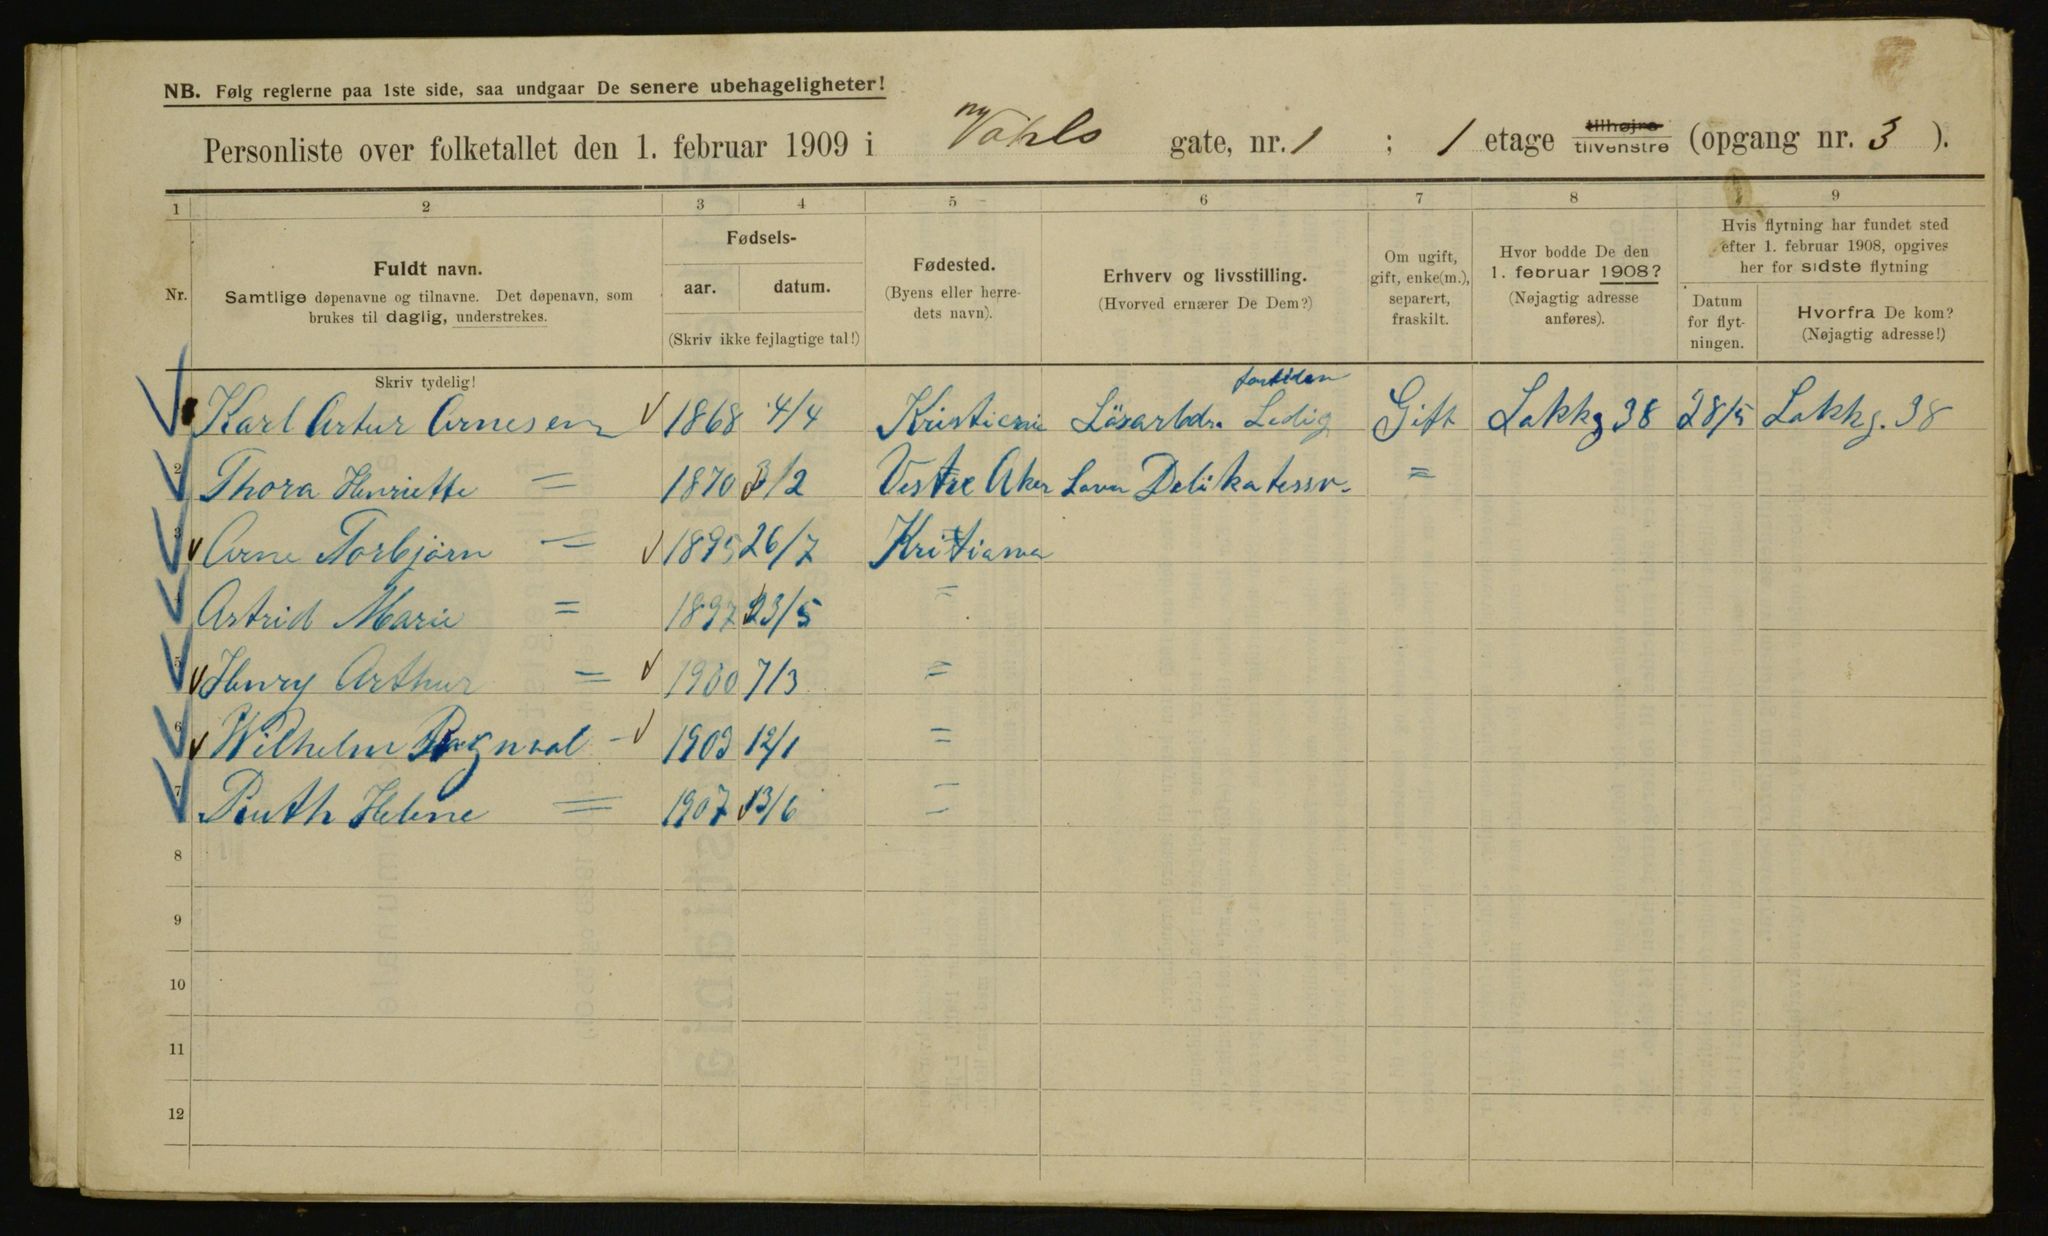 NB. Følg reglerne paa 1ste side, saa undgaar De senere ubehageligheter!
Personliste over folketallet den 1. februar 1909 i ny Vahls gate, nr. 1 ; 1 etage tilhøjre tilvenstre (opgang nr. 3 ).
1 2 3 4 5 6 7 8 9
Nr.
Fuldt navn.
Samtlige døpenavne og tilnavne. Det døpenavn, som
brukes til daglig, understrekes.
Skriv tydelig!
Fødsels-
aar. datum.
(Skriv ikke fejlagtige tal!)
Fødested.
(Byens eller herre-
dets navn).
Erhverv og livsstilling.
(Hvorved ernærer De Dem?)
Om ugift,
gift, enke(m.),
separert,
fraskilt.
Hvor bodde De den
1. februar 1908?
(Nøjagtig adresse
anføres).
Hvis flytning har fundet sted
efter 1. februar 1908, opgives
her for sidste flytning
Datum
for flyt-
ningen.
Hvorfra De kom?
(Nøjagtig adresse!)
Karl Artur Arnesen 1868 4/4 Kristiania Lösarbdr. Ledig Gift Lakkg 38 28/5 Lakkg. 38
2 Thora Henriette = 1870 3/2 Vestre Aker Delikatessv. =
3 Arne Torbjørn = 1895 26/7 Kritiania
4 Astrid Marie = 1897 23/5 =
5 Henry Arthur = 1900 7/3 =
6 Wilhelm Ragnval - 1903 12/1 =
7 Ruth Helene = 1907 13/6 =
8
9
10
11
12